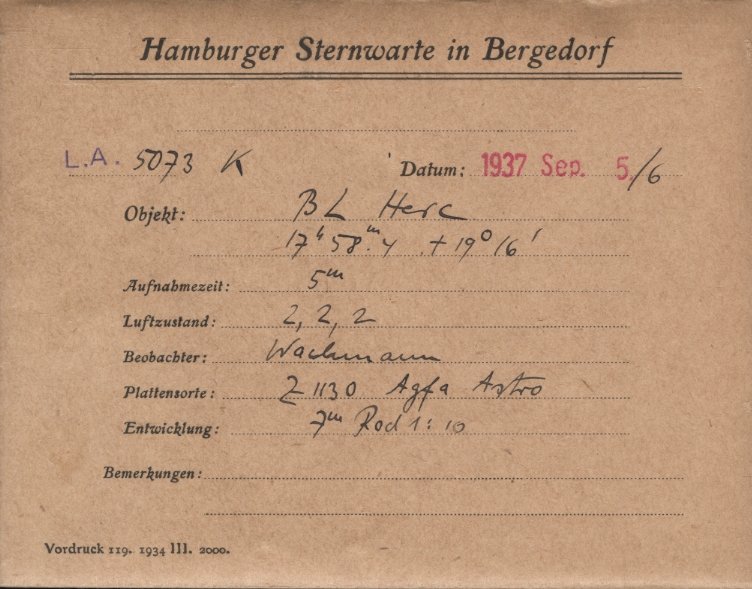 Hamburger Sternwarte in Bergedorf
L.A. 5073 K Datum: 1937 Sep. 5./6
Objekt: BL Herc
17ʰ 58.ᵐ4 + 19⁰ 16'
Aufnahmezeit: 5ᵐ
Luftzustand: 2, 2, 2
Beobachter: Wachmann
Plattensorte: Z 1130 Agfa Astro
Entwicklung: 7ᵐ Rod 1:10
Bemerkungen:
Vordruck 119. 1934 III. 2000.